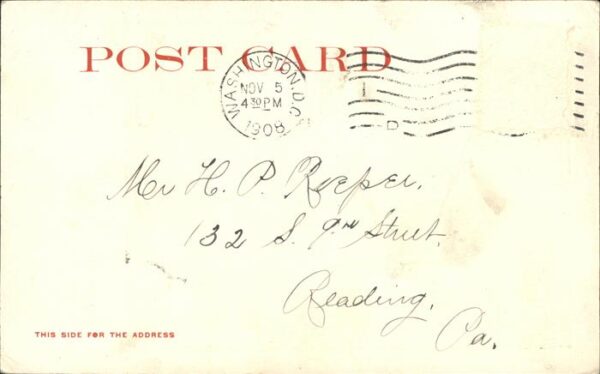 POST CARD
WASHINGTON, D.C.
NOV 5
4 30 PM
1908
D
Mr H. P. Roeper.
132 S. 9th Street.
Reading,
Pa.
THIS SIDE FOR THE ADDRESS